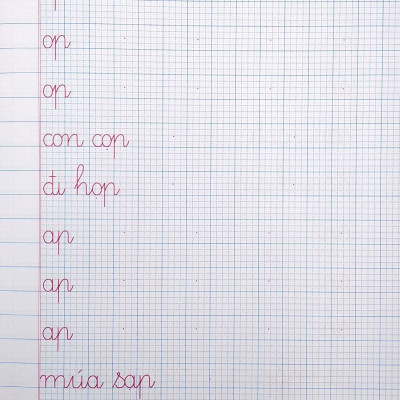 op
op
con cọp
đi họp
ap
ap
ap
múa sạp